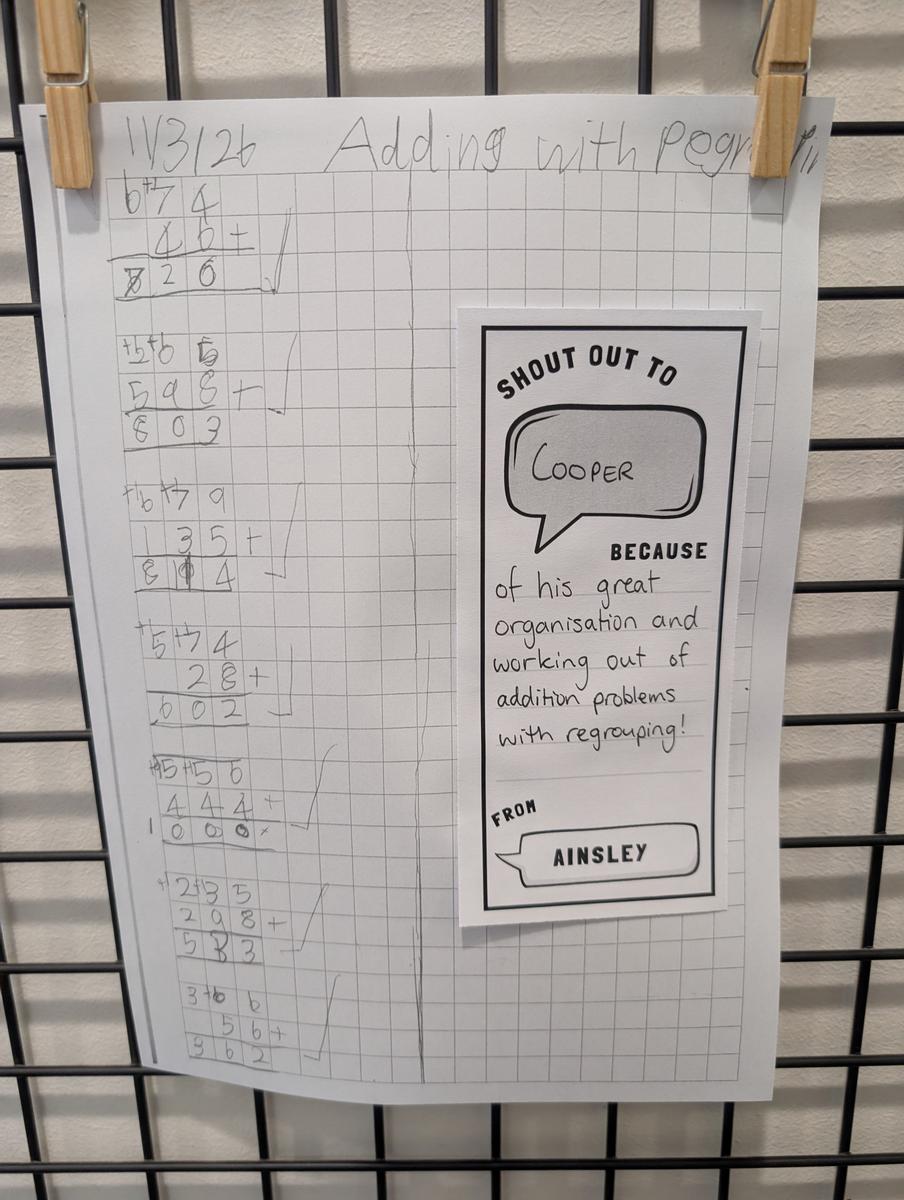 11/3/26 Adding with
6+174
46+
720
+12+105
598+
803
+16+179
135+
814
+15+174
28+
602
+15+156
444+
1000
+12+135
298+
533
3+106
56+
362
SHOUT OUT TO
COOPER
BECAUSE
of his great
organisation and
working out of
addition problems
with regrouping!
FROM
AINSLEY